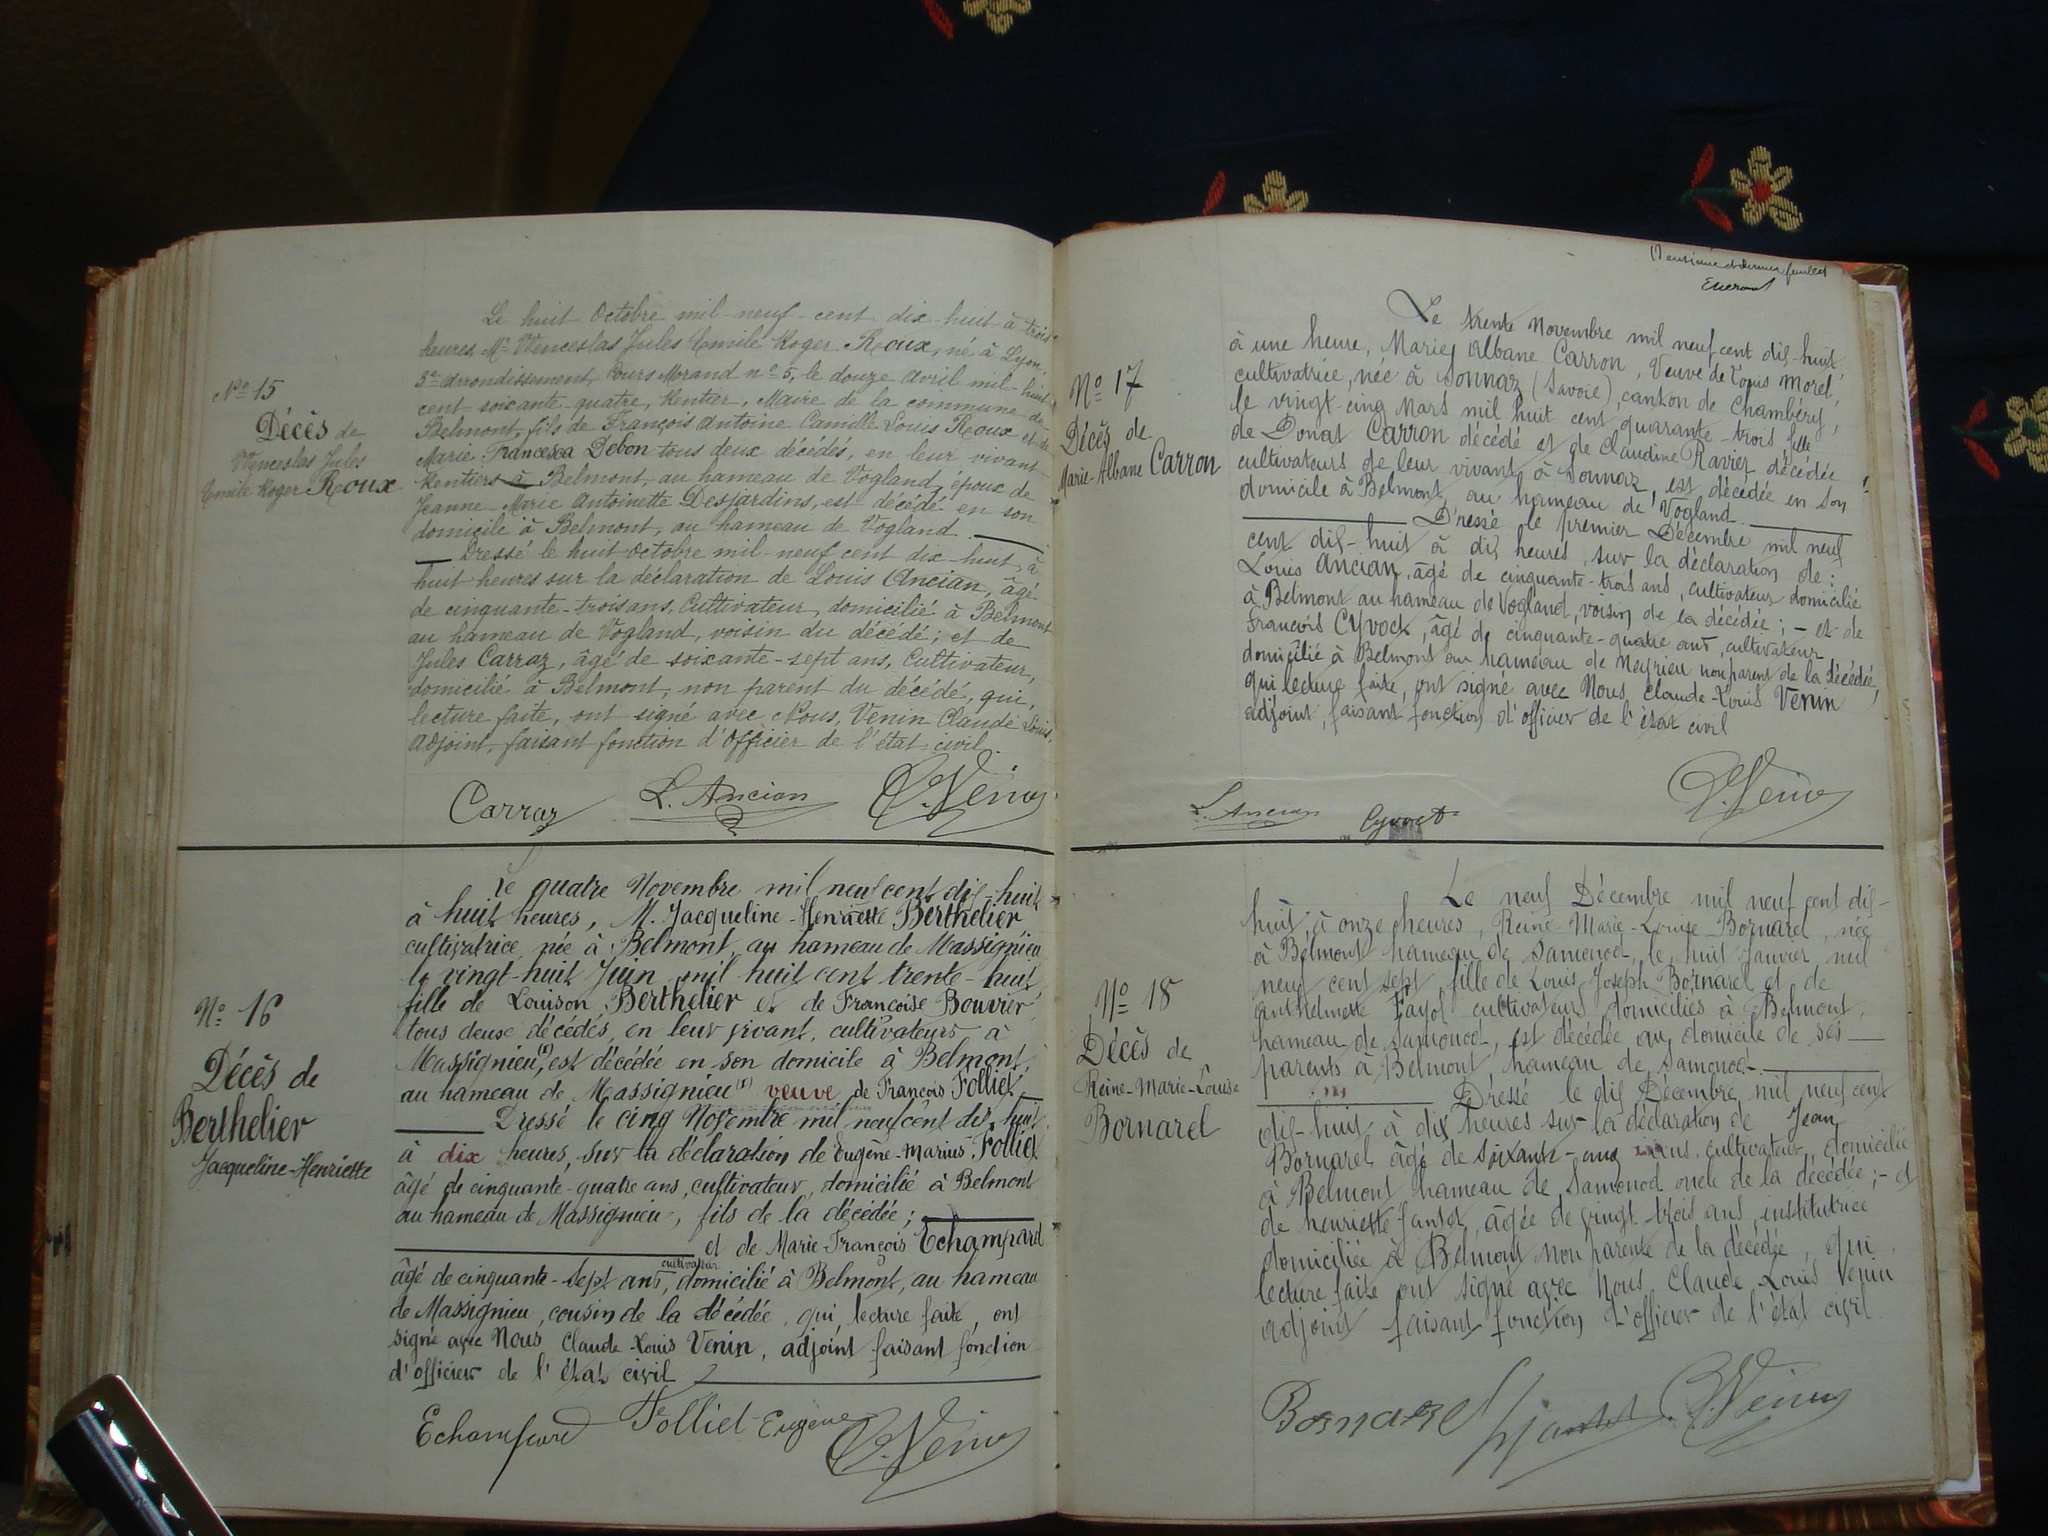 Nº 15
Décès de
Wenceslas Jules
Emile Roger Roux
Le huit Octobre mil-neuf-cent dix-huit à trois
heures, Mr Wenceslas Jules Emile Roger Roux, né à Lyon,
3e arrondissement, Cours Morand nº 5, le douze avril mil-huit
cent-soixante-quatre, Rentier, Maire de la commune de
Belmont, fils de François Antoine Camille Louis Roux et de
Marie Francesca Debon tous deux décédés, en leur vivant
Rentiers à Belmont, au hameau de Vogland, époux de
Jeanne Marie Antoinette Desjardins, est décédé en son
domicile à Belmont, au hameau de Vogland.
Dressé le huit octobre mil-neuf cent dix-huit, à
huit heures sur la déclaration de Louis Ancian, âgé
de cinquante-trois ans, Cultivateur, domicilié à Belmont
au hameau de Vogland, voisin du décédé; et de
Jules Carraz, âgé de soixante-sept ans, Cultivateur,
domicilié à Belmont, non parent du décédé, qui,
lecture faite, ont signé avec Nous, Venin Claude Louis,
Adjoint, faisant fonction d'Officier de l'état-civil.
Carraz L. Ancian C. Venin
Nº 16
Décès de
Berthelier
Jacqueline-Henriette
Le quatre Novembre mil neuf cent dix-huit
à huit heures, M. Jacqueline-Henriette Berthelier
cultivatrice, née à Belmont, au hameau de Massignieu
le vingt-huit Juin mil huit cent trente-huit,
fille de Louison Berthelier et de Françoise Bouvier,
tous deux décédés, en leur vivant, cultivateurs à
Massignieu, est décédée en son domicile à Belmont,
au hameau de Massignieu (1) veuve de François Folliet
Dressé le cinq Novembre mil neuf cent dix-huit
à dix heures, sur la déclaration de Eugène-Marius Folliet
âgé de cinquante-quatre ans, cultivateur, domicilié à Belmont
au hameau de Massignieu, fils de la décédée;
et de Marie-François Echampard
cultivateur
âgé de cinquante-sept ans, domicilié à Belmont, au hameau
de Massignieu, cousin de la décédée, qui, lecture faite, ont
signé avec Nous Claude-Louis Venin, adjoint faisant fonction
d'officier de l'état civil
Echampard Folliet Eugène C. Venin
et dernier feuillet
Nº 17
Décès de
Marie-Albane Carron
Le trente Novembre mil neuf cent dix-huit,
à une heure, Marie Albane Carron, Veuve de Louis Morel,
cultivatrice, née à Sonnaz (Savoie), canton de Chambéry,
le vingt-cinq Mars mil huit cent quarante-trois, fille
de Donat Carron décédé et de Claudine Ravier décédée
cultivateurs de leur vivant à Sonnaz, est décédée en son
domicile à Belmont, au hameau de Vogland.
Dressé le premier Décembre mil neuf
cent dix-huit à dix heures, sur la déclaration de:
Louis Ancian, âgé de cinquante-trois ans, cultivateur domicilié
à Belmont au hameau de Vogland, voisin de la décédée; - et de
François Cyvoct, âgé de cinquante-quatre ans, cultivateur
domicilié à Belmont au hameau de Meyrieu non parent de la décédée,
qui lecture faite, ont signé avec Nous, Claude-Louis Venin
adjoint, faisant fonction d'officier de l'état civil
L. Ancian Cyvoct C. Venin
Nº 18
Décès de
Reine-Marie-Louise
Bornarel
Le neuf Décembre mil neuf cent dix-
huit, à onze heures, Reine-Marie-Louise Bornarel, née
à Belmont hameau de Samonod, le huit Janvier mil
neuf cent sept, fille de Louis Joseph Bornarel et de
Anthelmette Fayol cultivateurs domiciliés à Belmont,
hameau de Samonod, est décédée au domicile de ses
parents à Belmont, hameau de Samonod.
Dressé le dix Décembre mil neuf cent
dix-huit à dix heures sur la déclaration de Jean
Bornarel âgé de soixante-cinq ans, cultivateur, domicilié
à Belmont hameau de Samonod oncle de la décédée; - et
de henriette Jantet, âgée de vingt-trois ans, institutrice
domiciliée à Belmont non parente de la décédée, qui,
lecture faite ont signé avec Nous Claude-Louis Venin
adjoint faisant fonction d'officier de l'état civil.
Bornarel H Jantet C. Venin